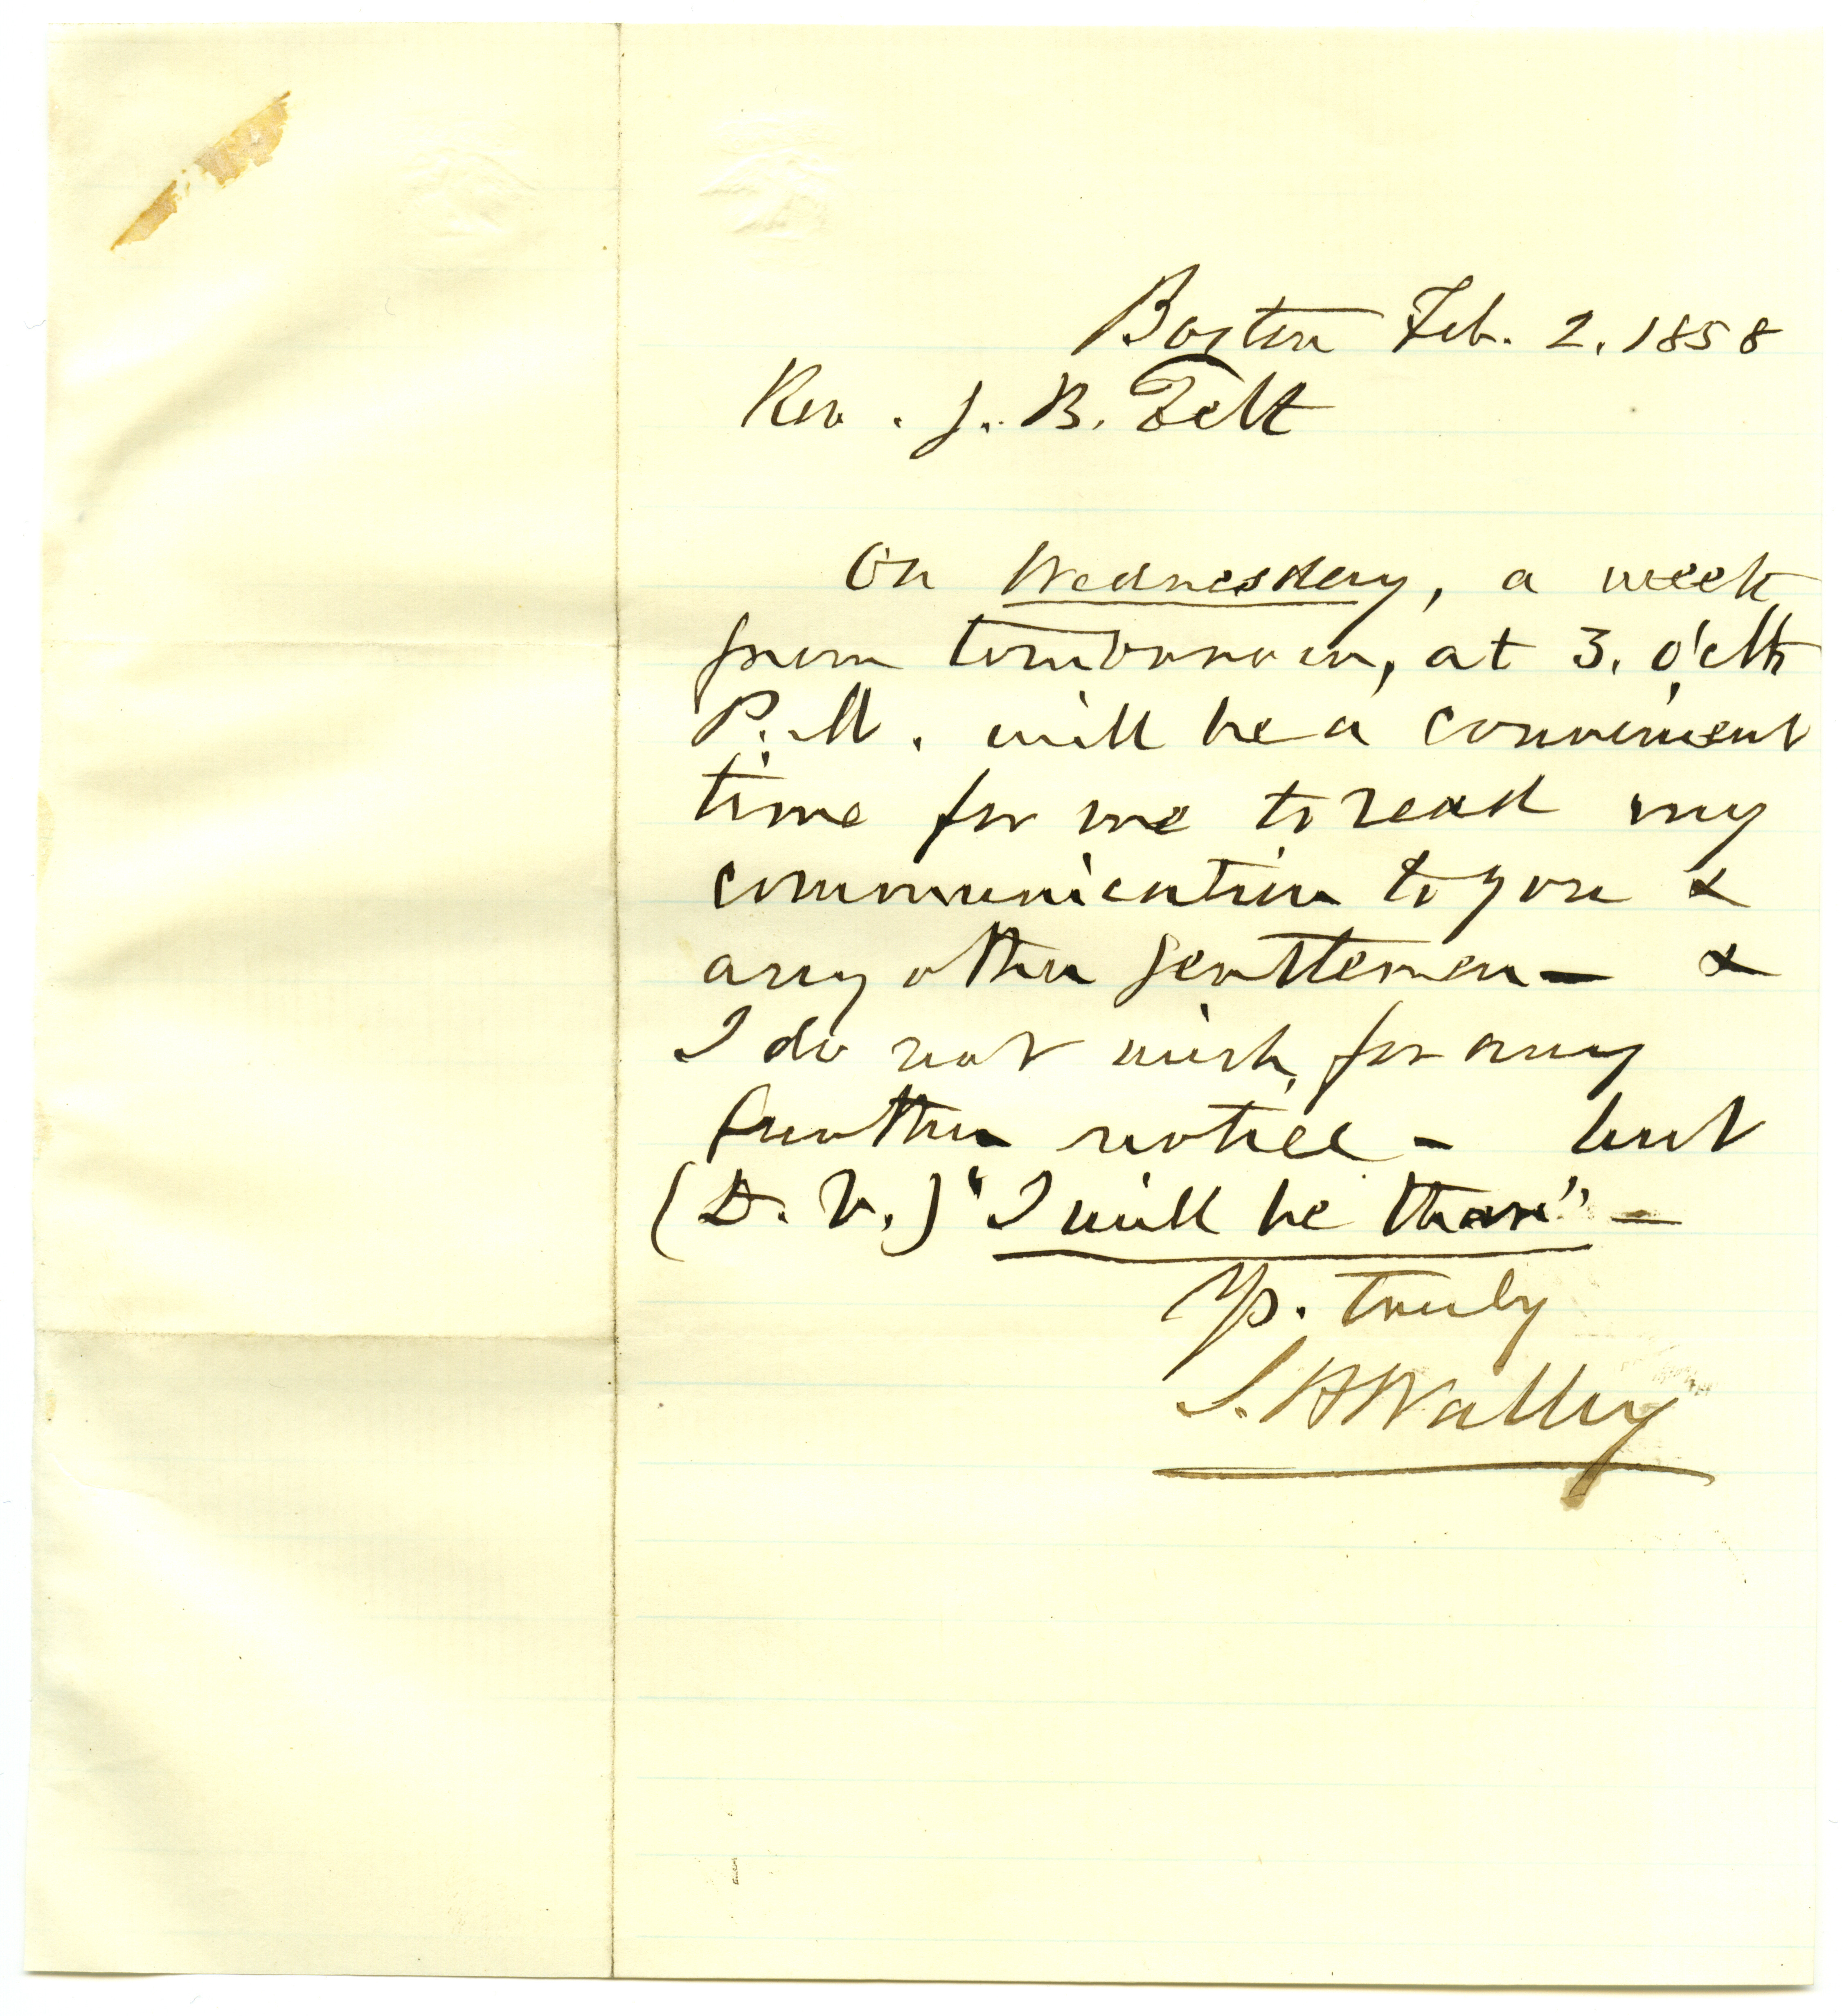 Boston Feb. 2. 1858
Rev. J. B. Felt
On Wednesday, a week
from tomorrow, at 3. o'clk
P.M. will be a convenient
time for me to read my
communication to you &
any other gentlemen — &
I do not wish, for any
further notice — but
(D. V.) "I will be there" —
Yrs. truly
S. H Walley